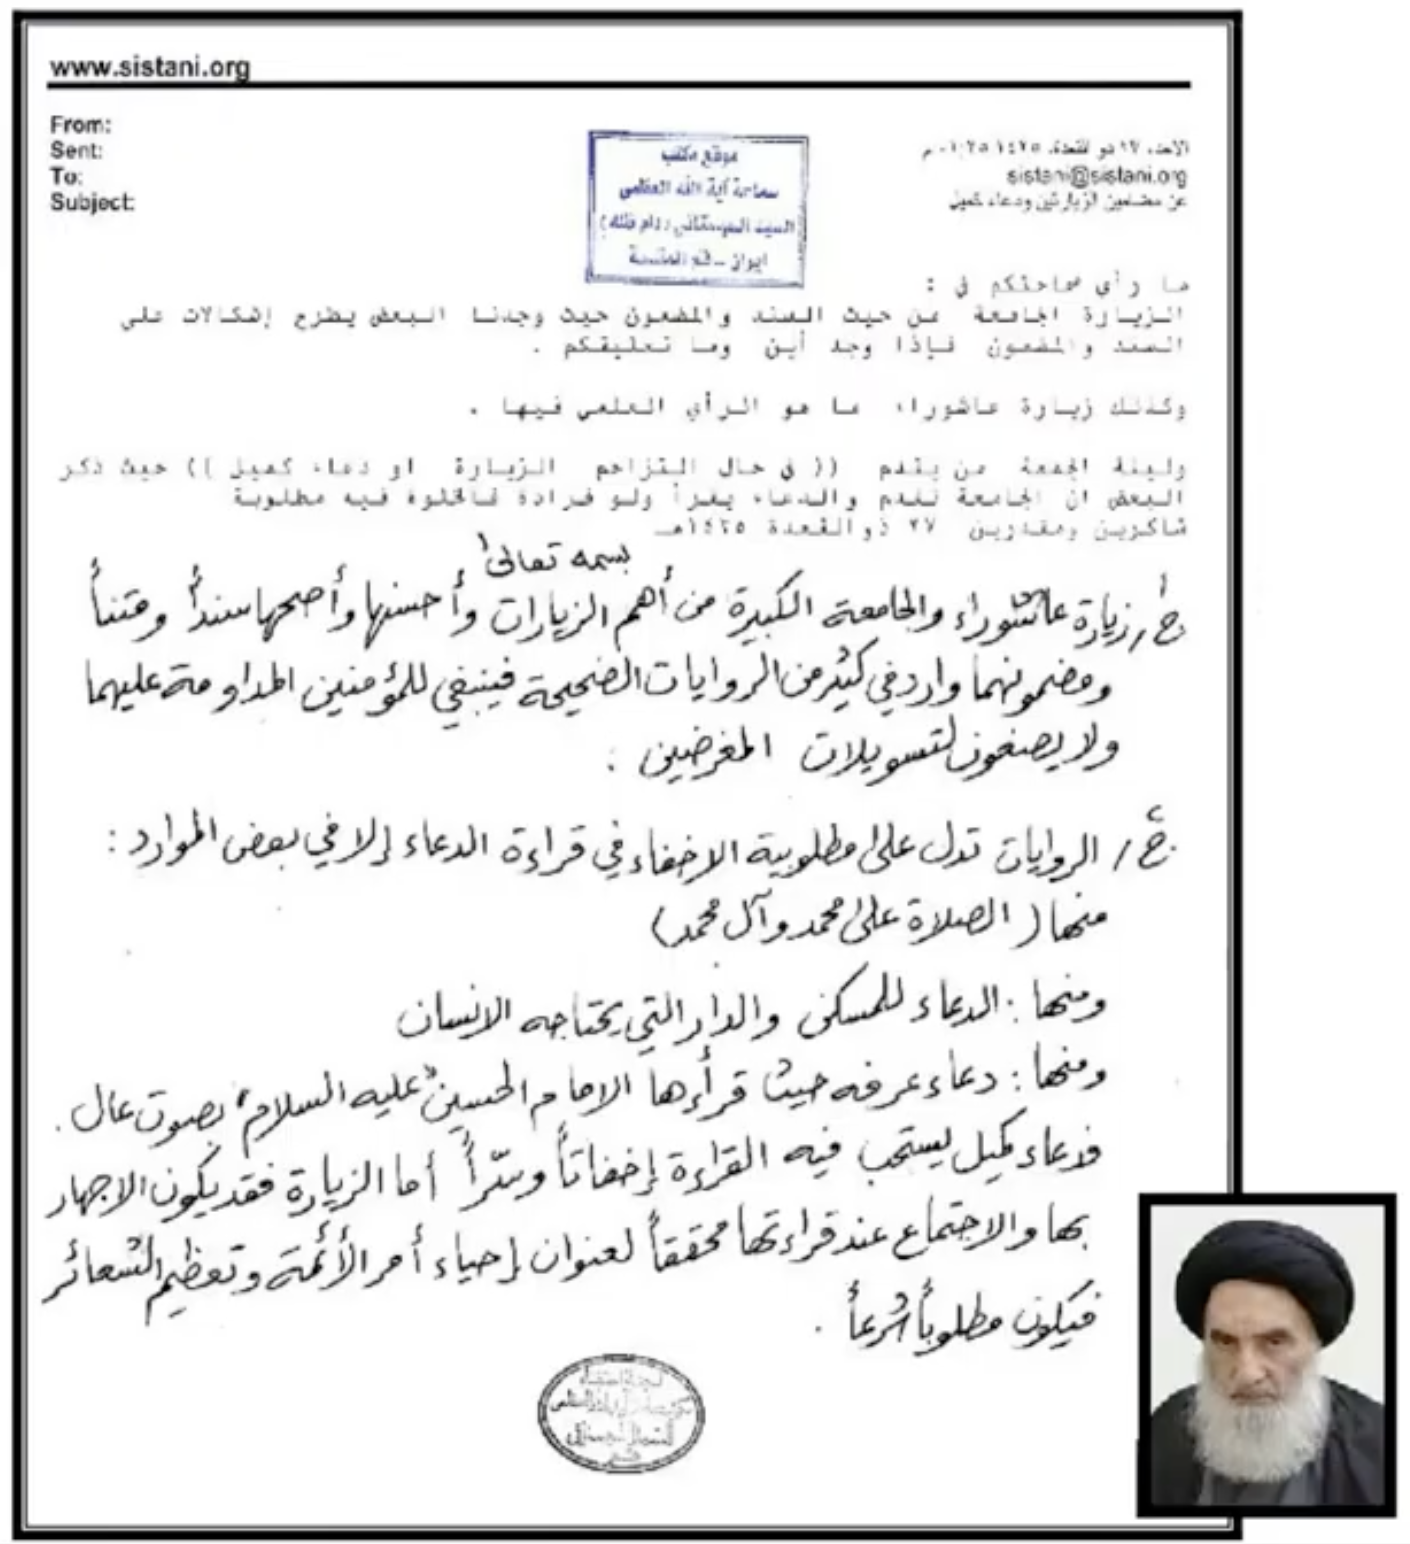 www.sistani.org
From:
Sent:
To:
Subject:
موقع مكتب
سماحة آية الله العظمى
السيد السيستاني (دام ظله)
ايران - قم المقدسة
الاحد، ذو القعدة، ١٤٢٥
sistani@sistani.org
عن مضامين الزيارتين ودعاء كميل
ما رأي سماحتكم في :
الزيارة الجامعة من حيث السند والمضمون حيث وجدنا البعض يطرح إشكالات على
السند والمضمون فإذا وجد أين وما تعليقكم .
وكذلك زيارة عاشوراء ما هو الرأي العلمي فيها .
وليلة الجمعة من يقدم (( في حال التزاحم الزيارة او دعاء كميل )) حيث ذكر
البعض ان الجامعة تقدم والدعاء يقرأ ولو فرادة فالخلوة فيه مطلوبة
شاكرين ومقدرين ٢٧ ذوالقعدة ١٤٢٥هـ
بسمه تعالى
ج١/ زيارة عاشوراء والجامعة الكبيرة من أهم الزيارات وأحسنها وأصحها سنداً ومتناً
ومضمونهما وارد في كثير من الروايات الصحيحة فينبغي للمؤمنين المداومة عليهما
ولا يصغون لتسويلات المغرضين :
ج٢/ الروايات تدل على مطلوبية الاخفاء في قراءة الدعاء إلا في بعض الموارد :
منها ( الصلاة على محمد وآل محمد)
ومنها : الدعاء للمسكن والدار التي يحتاجه الانسان
ومنها : دعاء عرفه حيث قرأءها الامام الحسين "عليه السلام" بصوت عال .
فدعاء كميل يستحب فيه القراءة إخفاتاً وسّراً أما الزيارة فقد يكون الاجهار
بها والاجتماع عند قراءتها محققاً لعنوان إحياء أمر الأئمة وتعظيم الشعائر
فيكون مطلوباً شرعاً .
لجنة استفتاء
قم